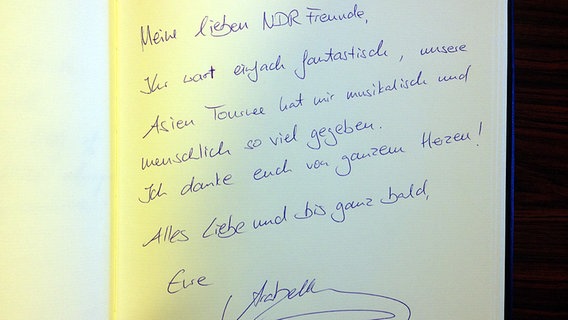 Meine lieben NDR Freunde,
Ihr wart einfach fantastisch, unsere
Asien Tournee hat mir musikalisch und
menschlich so viel gegeben.
Ich danke euch von ganzem Herzen!
Alles Liebe und bis ganz bald,
Eure
Arabella